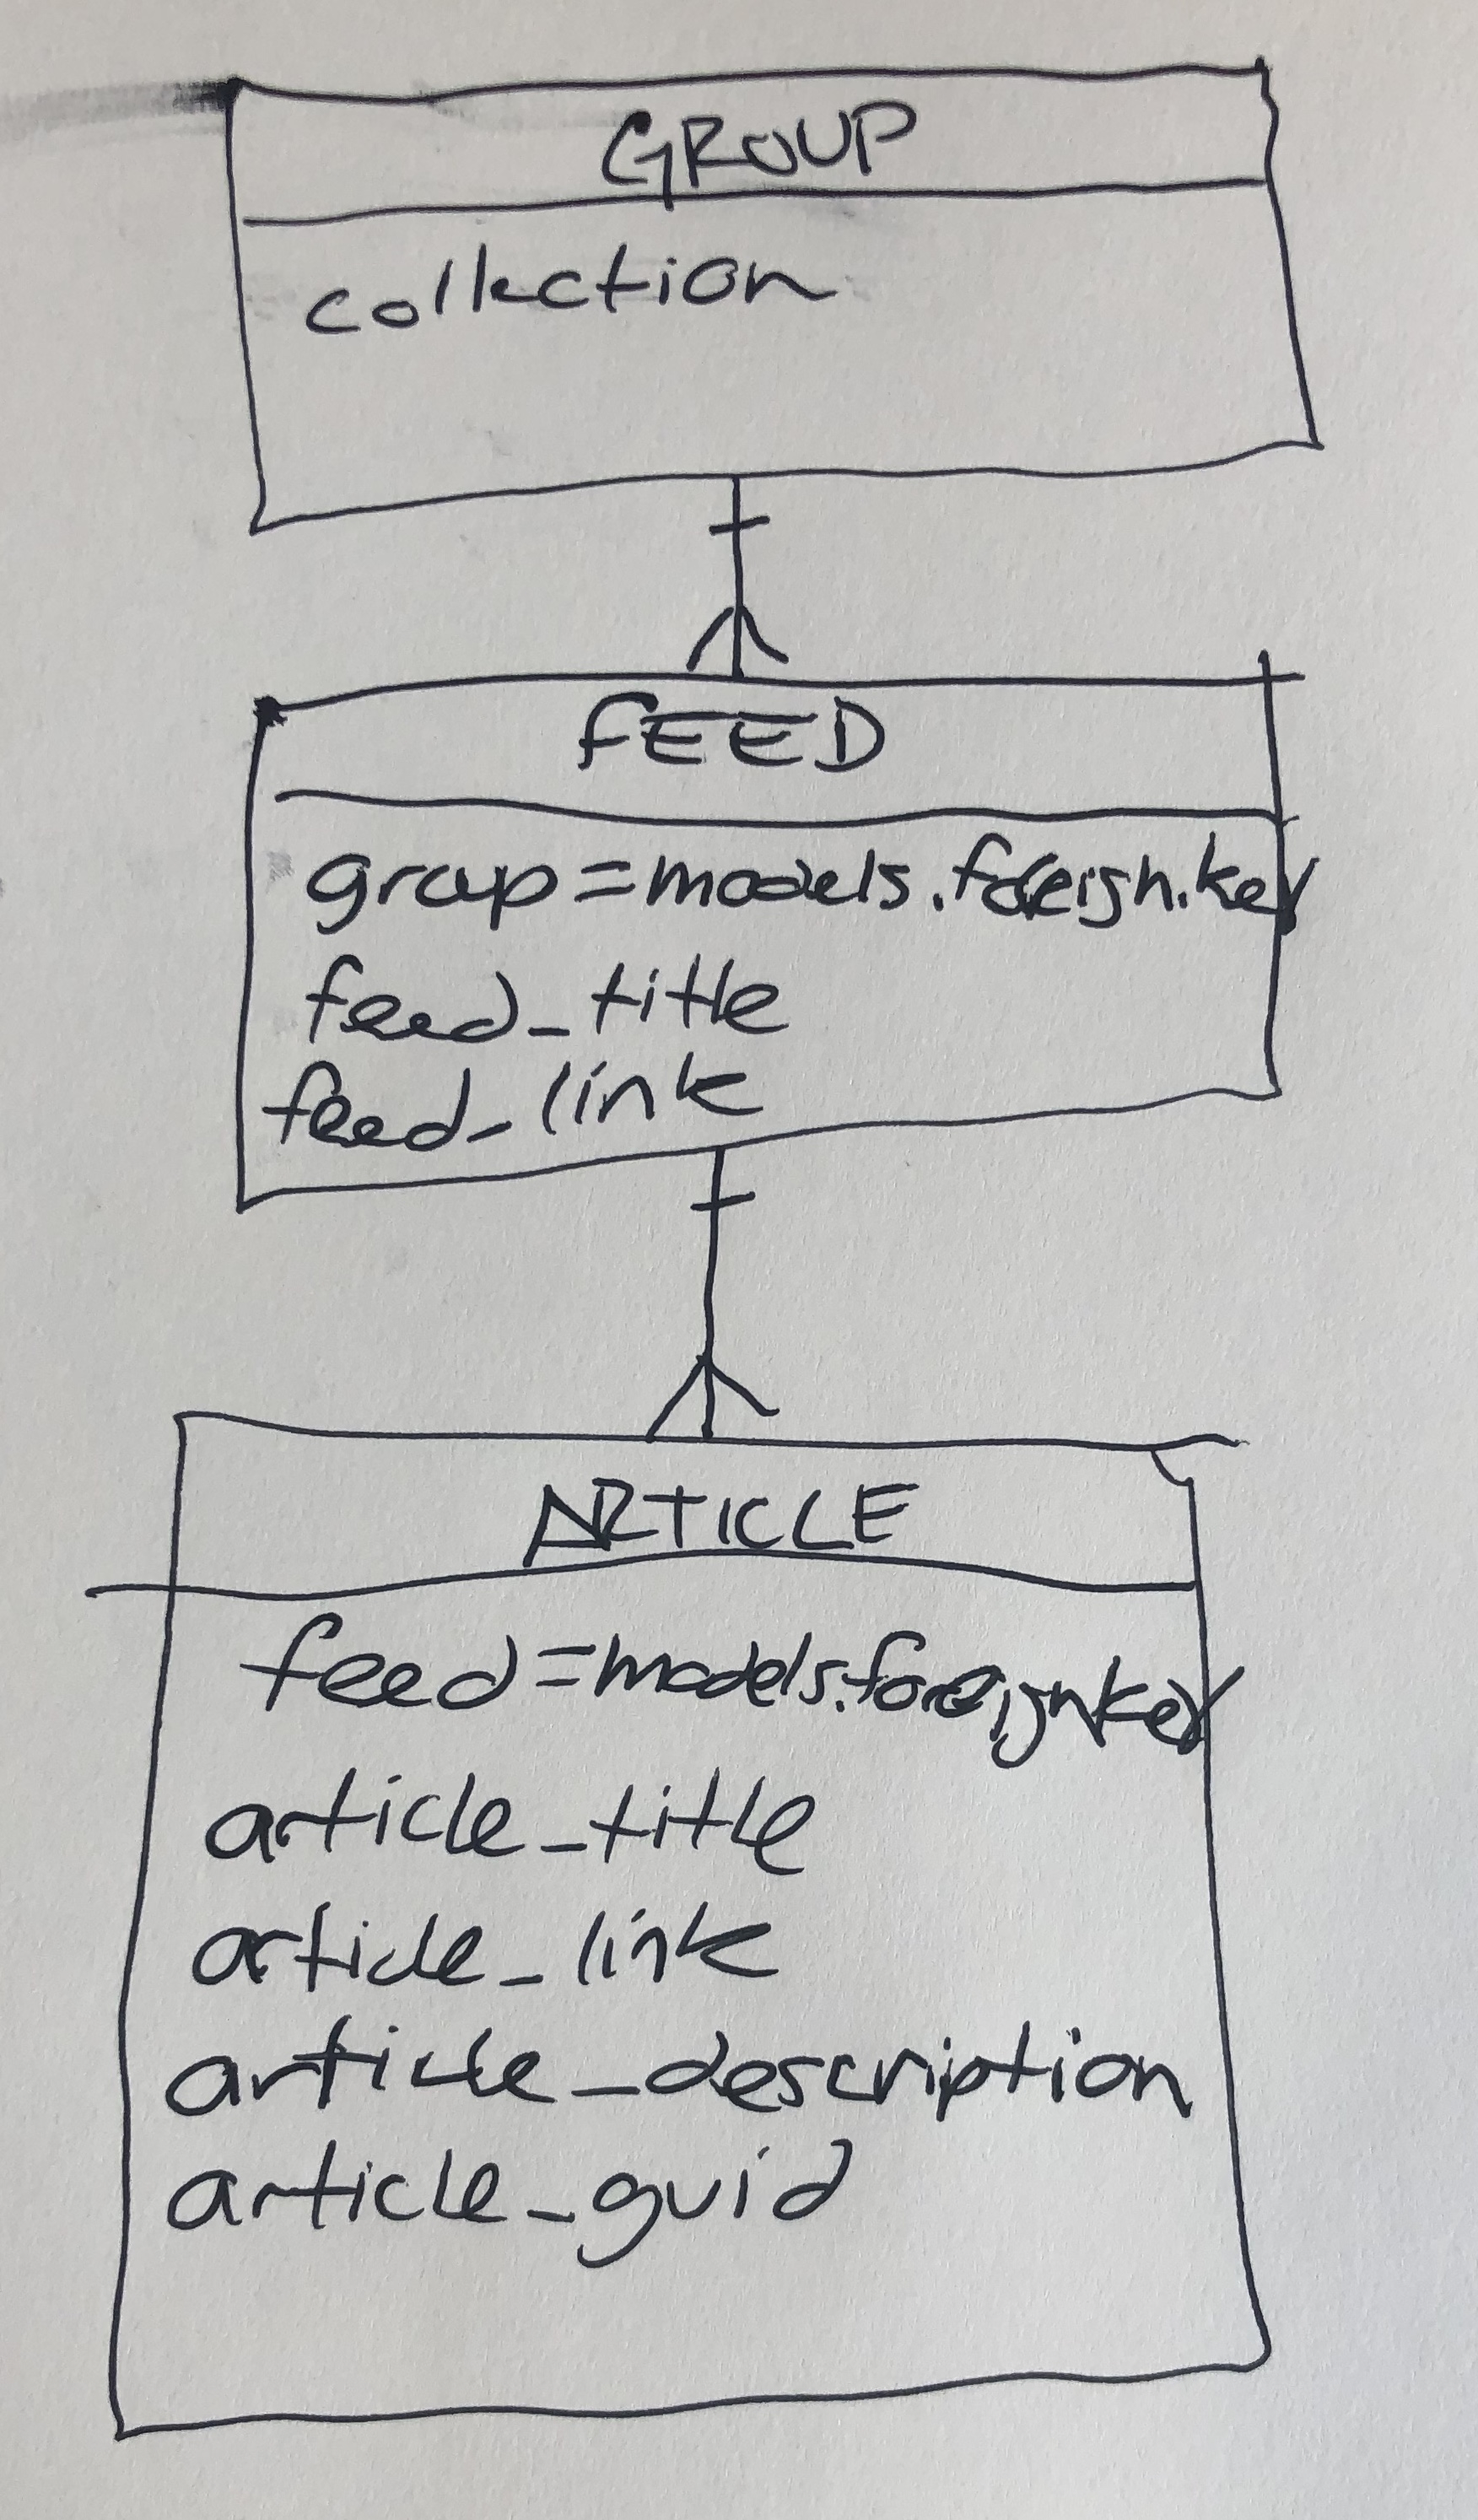 GROUP
collection
FEED
group=models.foreign.key
feed_title
feed_link
ARTICLE
feed=models.foreignkey
article_title
article_link
article_description
article_guid